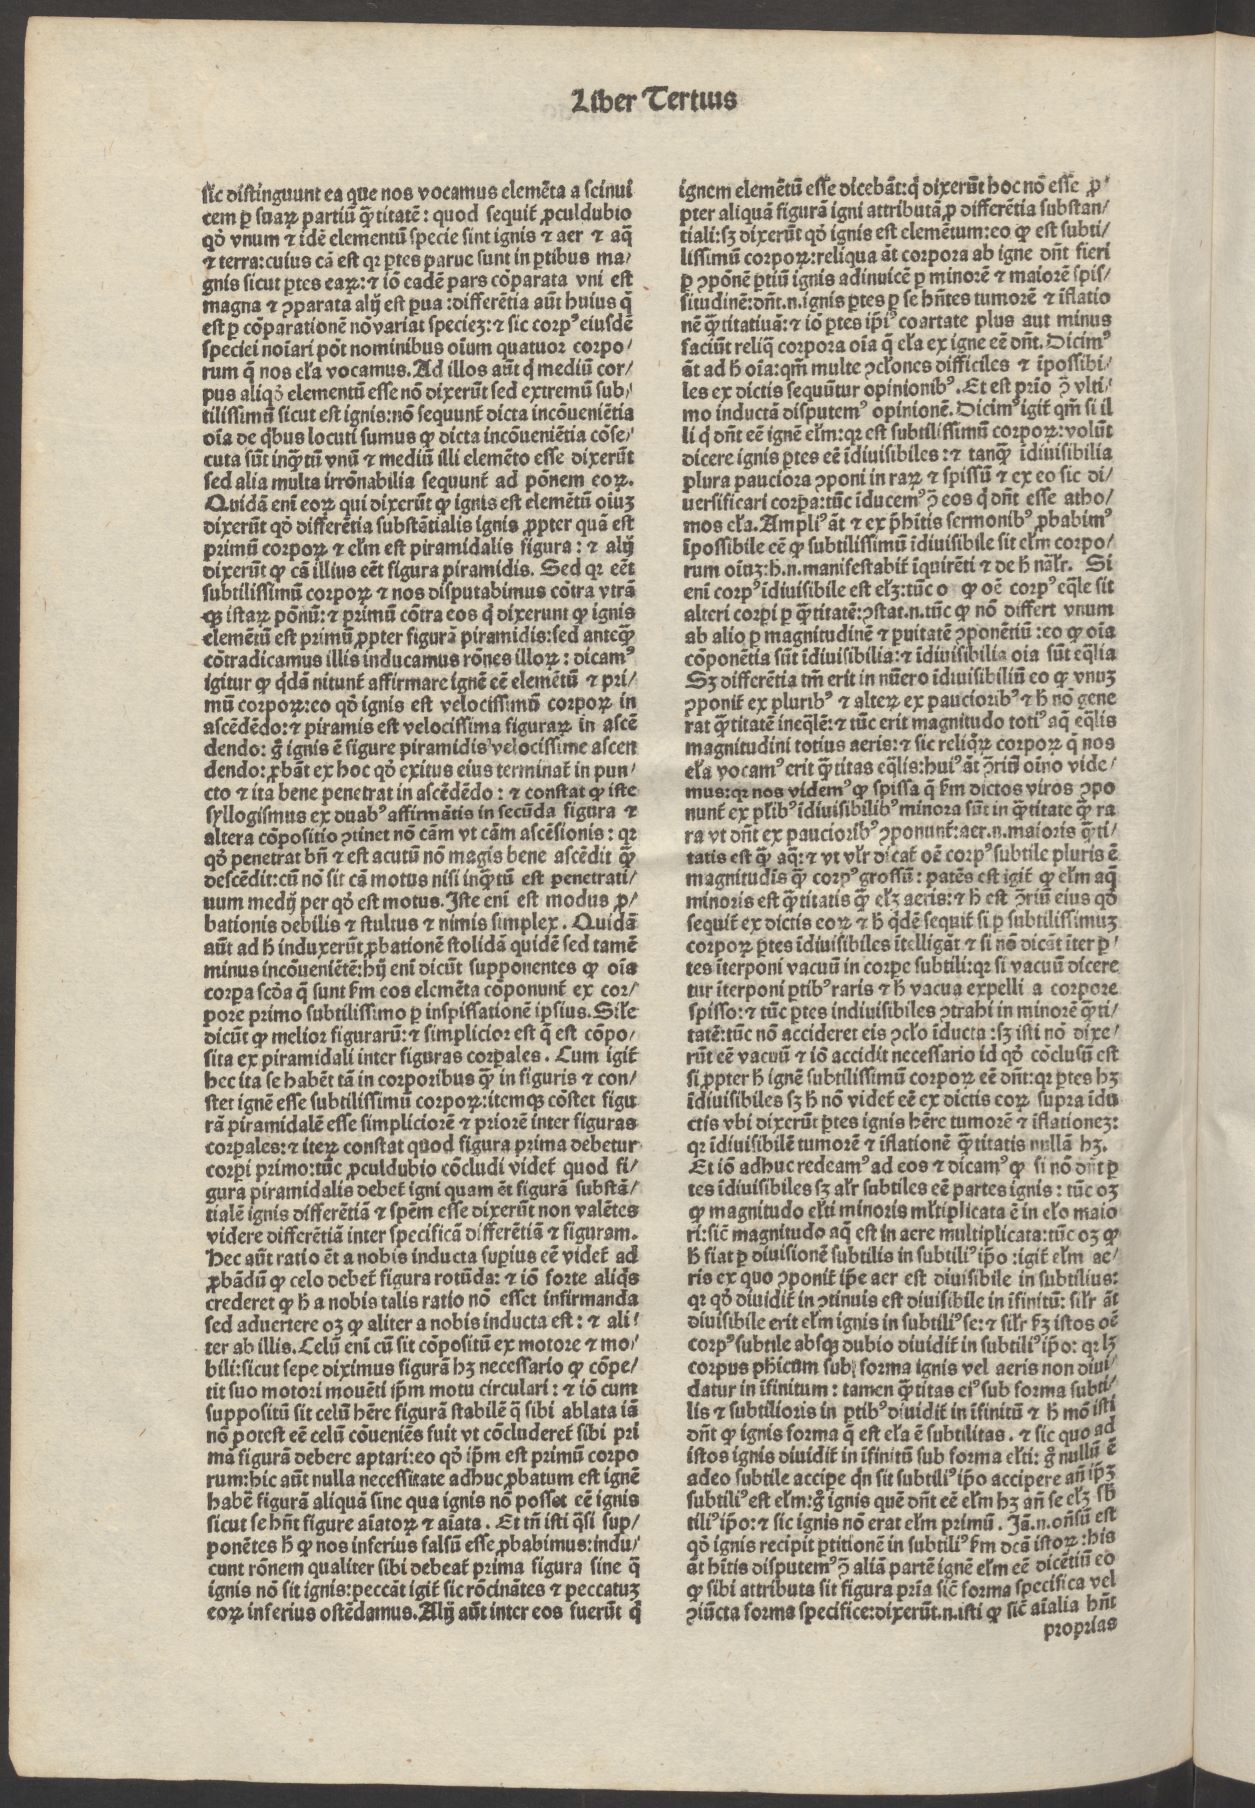 Liber Tertius
sic distinguunt ea que nos vocamus elemẽta a seinui
cem ꝑ suaꝝ partiũ q̃titatẽ: quod sequit̃ ꝓculdubio
qđ vnum ⁊ idẽ elementũ specie sint ignis ⁊ aer ⁊ aq̃
⁊ terra: cuius cã est qꝛ ꝑtes parue sunt in ꝑtibus ma-
gnis sicut ꝑtes eaꝝ: ⁊ iõ eadẽ pars cõparata vni est
magna ⁊ ꝯparata alij est ꝑua: differẽtia aũt huius q̃
est ꝑ cõparationẽ nõ variat specieꝫ: ⁊ sic corpꝰ eiusdẽ
speciei noĩari põt nominibus oĩum quatuor corpo/
rum q̃ nos eła vocamus. Ad illos aũt q̇ mediũ cor-
pus aliqđ elementũ esse nõ dixerũt sed extremũ sub-
tilissimũ sicut est ignis: nõ sequunt̃ dicta incõueniẽtia
oĩa de q̇bus locuti sumus ꝙ dicta incõueniẽtia cõse/
cuta sũt inq̃tũ vnũ ⁊ mediũ illi elemẽto esse dixerũt
sed alia multa irrõnabilia sequunt̃ ad põnem eoꝝ.
Quidã eni eoꝝ qui dixerũt ꝙ ignis est elemẽtũ oiuꝫ
dixerũt qđ differẽtia substãtialis ignis ꝓpter quã est
primũ corpoꝝ ⁊ ełm est piramidalis figura: ⁊ alij
dixerũt ꝙ cã illius eẽt figura piramidis. Sed qꝛ eẽt
subtilissimũ corpoꝝ ⁊ nos disputabimus cõtra vtrã
qꝫ istaꝝ põnũ: ⁊ primũ cõtra eos q̇ dixerunt ꝙ ignis
elemẽtũ est primũ ꝓpter figurã piramidis: sed anteq̃
cõtradicamus illis inducamus rõnes illoꝝ: dicamꝰ
igitur ꝙ q̇dã nitunt̃ affirmare ignẽ eẽ elemẽtũ ⁊ pri/
mũ corpoꝝ: eo qđ ignis est velocissimũ corpoꝝ in
ascẽdẽdo: ⁊ piramis est velocissima figuraꝝ in ascẽ
dendo: g̊ ignis ẽ figure piramidis velocissime ascen
dendo: ꝓbãt ex hoc qđ exitus eius terminat̃ in pun/
cto ⁊ ita bene penetrat in ascẽdẽdo: ⁊ constat ꝙ iste
syllogismus ex duabꝰ affirmãtis in secũda figura ⁊
altera cõpositio ꝯtinet nõ cãm vt cãm ascẽsionis: qꝛ
qđ penetrat bñ ⁊ est acutũ nõ magis bene ascẽdit q̃
descẽdit: cũ nõ sit cã motus nisi inq̃tũ est penetrati/
uum medij per qđ est motus. Iste eni est modus ꝓ/
bationis debilis ⁊ stultus ⁊ nimis simplex. Quidã
aũt ad h̃ induxerũt ꝓbationẽ stolidã quidẽ sed tamẽ
minus incõueniẽtẽ: hij eni dicũt supponentes ꝙ oĩa
corꝑa scđa q̃ sunt ẜm eos elemẽta cõponunt̃ ex cor-
pore primo subtilissimo ꝑ inspissationẽ ipsius. Siłe
dicũt ꝙ melior figurarũ: ⁊ simplicior est q̃ est cõpo-
sita ex piramidali inter figuras corꝑales. Cum igit̃
hec ita se habẽt tã in corporibus q̃ in figuris ⁊ con-
stet ignẽ esse subtilissimũ corpoꝝ: itemqꝫ cõstet figu
rã piramidalẽ esse simpliciorẽ ⁊ priorẽ inter figuras
corꝑales: ⁊ iteꝝ constat quod figura prima debetur
corꝑi primo: tũc ꝓculdubio cõcludi videt̃ quod fi/
gura piramidalis debet̃ igni quam ẽt figurã substã/
tialẽ ignis differẽtiã ⁊ spẽm esse dixerũt non valẽtes
videre differẽtiã inter specificã differẽtiã ⁊ figuram.
Hec aũt ratio ẽt a nobis inducta suꝑius eẽ videt̃ ad
ꝓbãdũ ꝙ celo debet̃ figura rotũda: ⁊ iõ forte aliq̇s
crederet ꝙ h̃ a nobis talis ratio nõ esset infirmanda
sed aduertere oꝫ ꝙ aliter a nobis inducta est: ⁊ ali/
ter ab illis. Celũ eni cũ sit cõpositũ ex motore ⁊ mo/
bili: sicut sepe diximus figurã hꝫ necessario ꝙ cõpe/
tit suo motori mouẽti ip̃m motu circulari: ⁊ iõ cum
suppositũ sit celũ hẽre figurã stabilẽ q̃ sibi ablata iã
nõ potest eẽ celũ cõueniẽs fuit vt cõcluderet̃ sibi pri
mã figurã debere aptari: eo qđ ip̃m est primũ corpo
rum: hic aũt nulla necessitate adhuc ꝓbatum est ignẽ
habẽ figurã aliquã sine qua ignis nõ posset eẽ ignis
sicut se hñt figure aĩatoꝝ ⁊ aĩata. Et tñ isti q̃si sup/
ponẽtes h̃ ꝙ nos inferius falsũ esse ꝓbabimus: indu/
cunt rõnem qualiter sibi debeat̃ prima figura sine q̃
ignis nõ sit ignis: peccãt igit̃ sic rõcinãtes ⁊ peccatuꝫ
eoꝝ inferius ostẽdamus. Alij aũt inter eos fuerũt q̇
ignem elemẽtũ esse dicebãt: q̇ dixerũt hoc nõ esse ꝓ/
pter aliquã figurã igni attributã ꝓ differẽtia substan/
tiali: sꝫ dixerũt qđ ignis est elemẽtum: eo ꝙ est subti/
lissimũ corpoꝝ: reliqua ãt corpora ab igne dñt fieri
ꝑ ꝯponẽ ꝑtiũ ignis adinuicẽ ꝑ minorẽ ⁊ maiorẽ spis/
situdinẽ: dñt.n. ignis ꝑtes ꝑ se hñtes tumorẽ ⁊ ĩflatio
nẽ q̃titatiuã: ⁊ iõ ꝑtes ip̃iꝰ coartate plus aut minus
faciũt reliq̃ corpora oĩa q̃ eła ex igne eẽ dñt. Dicimꝰ
ãt ad h̃ oĩa: qm̃ multe ꝯcłones difficiles ⁊ ĩpossibi/
les ex dictis sequũtur opinionibꝰ. Et est prĩo ꝯ̃ vlti/
mo inductã disputemꝰ opinionẽ. Dicimꝰ igit̃ qm̃ si il
li q̇ dñt eẽ ignẽ ełm: qꝛ est subtilissimũ corpoꝝ: volũt
dicere ignis ꝑtes eẽ ĩdiuisibiles: ⁊ tanq̃ ĩdiuisibilia
plura pauciora ꝯponi in raꝝ ⁊ spissũ ⁊ ex eo sic di/
uersificari corꝑa: tũc ĩducemꝰ ꝯ̃ eos q̇ dñt esse atho/
mos eła. Ampliꝰ ãt ⁊ ex p̃hĩtis sermonibꝰ ꝓbabimꝰ
ĩpossibile eẽ ꝙ subtilissimũ ĩdiuisibile sit ełm corpo/
rum oĩuꝫ: h̃.n. manifestabit̃ ĩquirẽti ⁊ de h̃ nãłr. Si
eni corpꝰ ĩdiuisibile est ełꝫ: tũc o ꝙ oẽ corpꝰ eq̃le sit
alteri corꝑi ꝑ q̃titatẽ: ꝯstat.n. tũc ꝙ nõ differt vnum
ab alio ꝑ magnitudinẽ ⁊ ꝑuitatẽ ꝯponẽtiũ: eo ꝙ oĩa
cõponẽtia sũt ĩdiuisibilia: ⁊ ĩdiuisibilia oĩa sũt eq̃lia
Sꝫ differẽtia tm̃ erit in nũero ĩdiuisibiliũ eo ꝙ vnuꝫ
ꝯponit̃ ex pluribꝰ ⁊ alteꝝ ex paucioribꝰ ⁊ h̃ nõ gene
rat q̃titatẽ ineq̃lẽ: ⁊ tũc erit magnitudo totiꝰ aq̃ eq̃lis
magnitudini totius aeris: ⁊ sic reliq̃ꝝ corpoꝝ q̃ nos
eła vocamꝰ erit q̃titas eq̃lis: huiꝰ ãt ꝯ̃riũ oĩno vide-
mus: qꝛ nos videmꝰ ꝙ spissa q̃ ẜm dictos viros ꝯpo
nunt̃ ex pl̃ibꝰ ĩdiuisibilibꝰ minora sũt in q̃titate q̃ ra
ra vt dñt ex paucioribꝰ ꝯponunt̃: aer.n. maioris q̃ti/
tatis est q̃ aq̃: ⁊ vt vłr dicat̃ oẽ corpꝰ subtile pluris ẽ
magnitudĩs q̃ corpꝰ grossũ: patẽs est igit̃ ꝙ ełm aq̃
minoris est q̃titatis q̃ ełꝫ aeris: ⁊ h̃ est ꝯ̃riũ eius qđ
sequit̃ ex dictis eoꝝ ⁊ h̃ q̇dẽ sequit̃ si ꝑ subtilissimuꝫ
corpoꝝ ꝑtes ĩdiuisibiles ĩtelligãt ⁊ si nõ dicãt ĩter ꝑ/
tes ĩterponi vacuũ in corꝑe subtili: qꝛ si vacuũ dicere
tur ĩterponi ꝑtibꝰ raris ⁊ h̃ vacua expelli a corpore
spisso: ⁊ tũc ꝑtes indiuisibiles ꝯtrahi in minorẽ q̃ti/
tatẽ: tũc nõ accideret eis ꝯcło ĩducta: sꝫ isti nõ dixe/
rũt eẽ vacuũ ⁊ iõ accidit necessario id qđ cõclusũ est
si ꝓpter h̃ ignẽ subtilissimũ corpoꝝ eẽ dñt: qꝛ ꝑtes hꝫ
ĩdiuisibiles sꝫ h̃ nõ videt̃ eẽ ex dictis eoꝝ supra ĩdu
ctis vbi dixerũt ꝑtes ignis hẽre tumorẽ ⁊ ĩflationeꝫ:
qꝛ ĩdiuisibilẽ tumorẽ ⁊ ĩflationẽ q̃titatis nullã hꝫ.
Et iõ adhuc redeamꝰ ad eos ⁊ dicamꝰ ꝙ si nõ dñt ꝑ
tes ĩdiuisibiles sꝫ ałr subtiles eẽ partes ignis: tũc oꝫ
ꝙ magnitudo ełti minoris młtiplicata ẽ in eło maio
ri: sic̃ magnitudo aq̃ est in aere multiplicata: tũc oꝫ ꝙ
h̃ fiat ꝑ diuisionẽ subtilis in subtiliꝰ ip̃o: igit̃ ełm ae/
ris ex quo ꝯponit̃ ip̃e aer est diuisibile in subtilius:
qꝛ qđ diuidit̃ in ꝯtinuis est diuisibile in ĩfinitũ: siłr ãt
diuisibile erit ełm ignis in subtiliꝰ se: ⁊ siłr ẜꝫ istos oẽ
corpꝰ subtile absqꝫ dubio diuidit̃ in subtiliꝰ ip̃o: qꝛ lꝫ
corpus ph̃icum sub forma ignis vel aeris non diui/
datur in ĩfinitum: tamen q̃titas eiꝰ sub forma subti/
lis ⁊ subtilioris in ꝑtibꝰ diuidit̃ in ĩfinitũ ⁊ h̃ mõ isti
dñt ꝙ ignis forma q̃ est eła ẽ subtilitas. ⁊ sic quo ad
istos ignis diuidit̃ in ĩfinitũ sub forma ełti: g̊ nullũ ẽ
adeo subtile accipe qñ sit subtiliꝰ ip̃o accipere añ ip̃ꝫ
subtiliꝰ est ełm: g̊ ignis quẽ dñt eẽ ełm hꝫ añ se ełꝫ sb̃
tiliꝰ ip̃o: ⁊ sic ignis nõ erat ełm primũ. Iã.n. oñsũ est
qđ ignis recipit ꝑtitionẽ in subtiliꝰ ẜm dcã istoꝝ: his
ãt hĩtis disputemꝰ ꝯ̃ aliã partẽ ignẽ ełm eẽ dicẽtiũ eo
ꝙ sibi attributa sit figura prĩa sic̃ forma specifica vel
ꝯiũcta forma specifice: dixerũt.n. isti ꝙ sic̃ aĩalia hñt
proprias